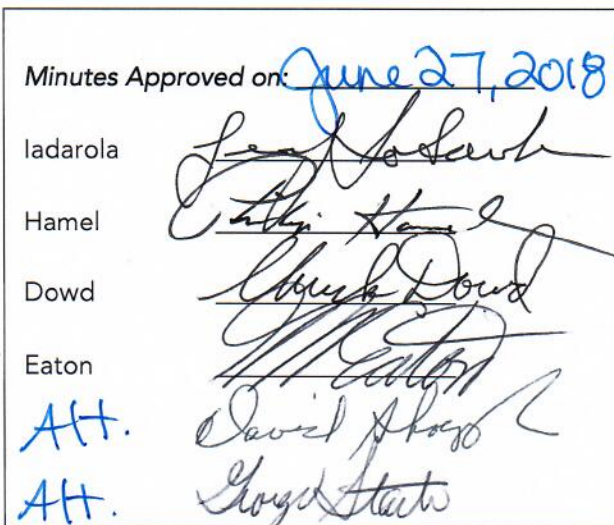 Minutes Approved on: June 27, 2018
Iadarola
Hamel Phillip Hamel
Dowd Chuck Dowd
Eaton M Eaton
Alt. David
Alt. George